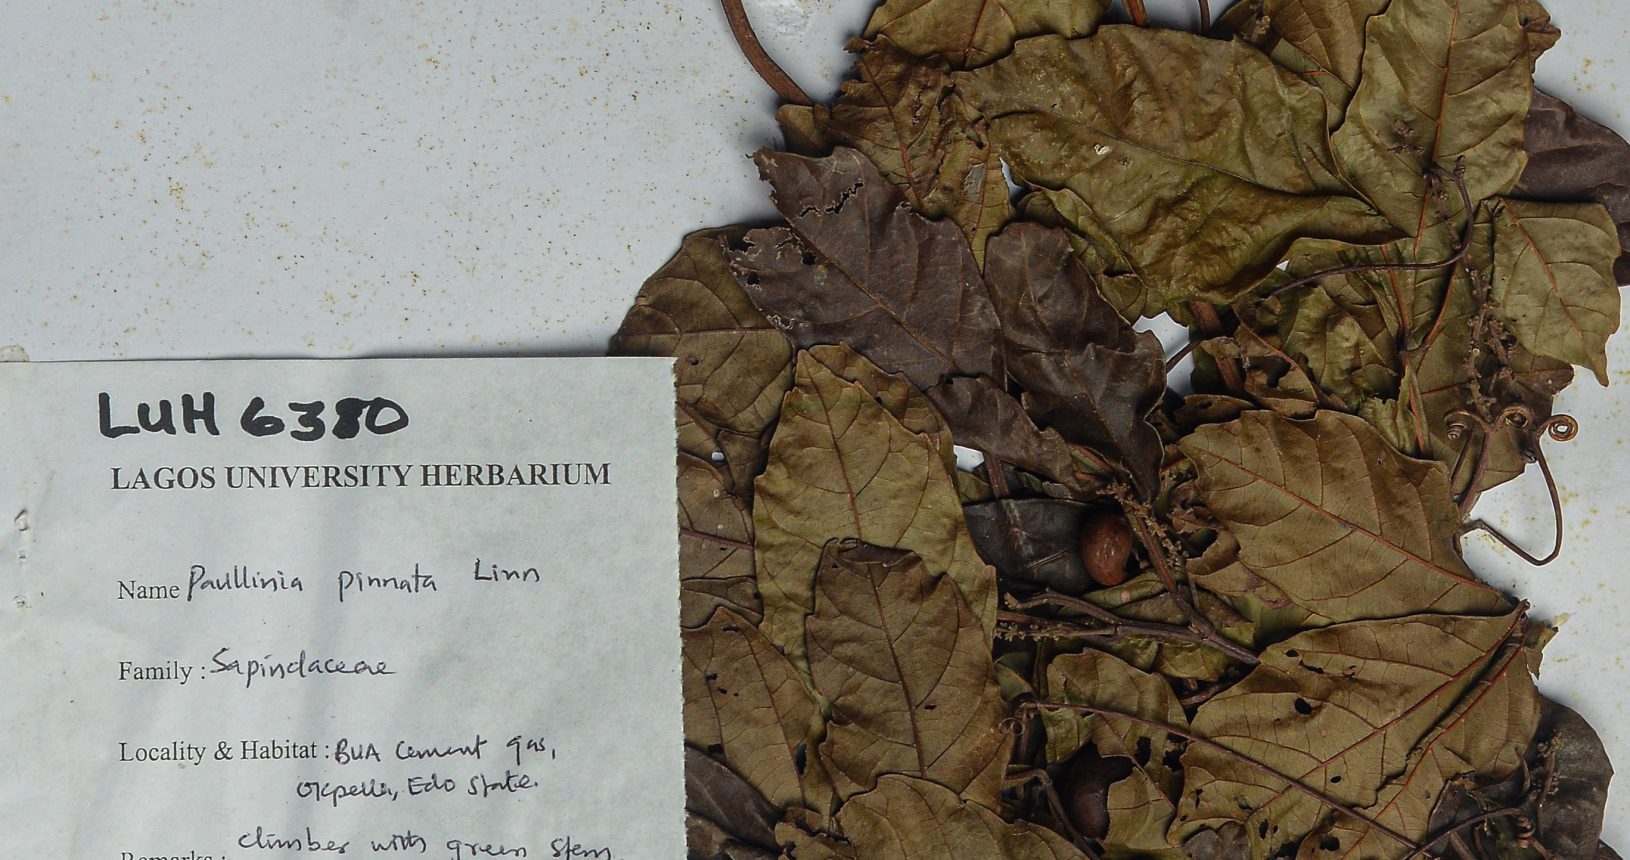 LUH 6380
LAGOS UNIVERSITY HERBARIUM
Name Paullinia pinnata Linn
Family : Sapindaceae
Locality & Habitat : BUA Cement gas,
Okpella, Edo State.
climber with green stem
Remarks :